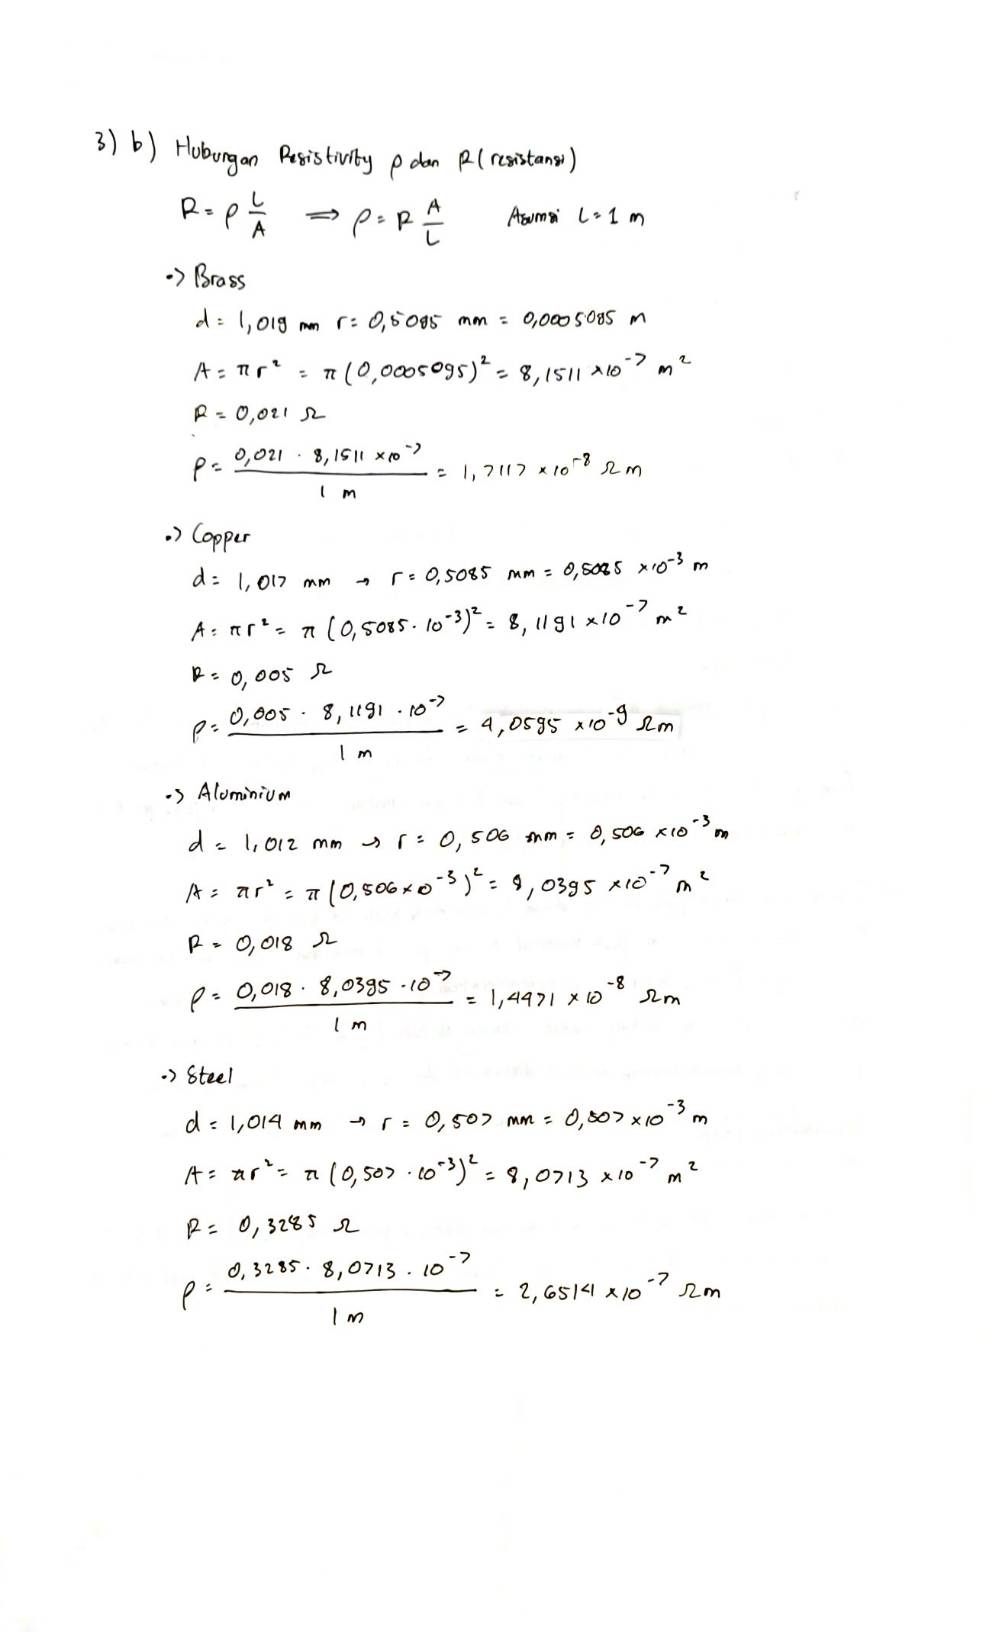 3) b) Hubungan Resistivity ρ dan R (resistansi)
R = ρ L/A ⟹ ρ = R A/L Asumsi L = 1 m
•> Brass
d = 1,019 mm r = 0,5095 mm = 0,0005095 m
A = π r² = π (0,0005095)² = 8,1511 × 10⁻⁷ m²
R = 0,021 Ω
ρ = 0,021 · 8,1511 × 10⁻⁷ / 1 m = 1,7117 × 10⁻⁸ Ω m
•> Copper
d = 1,017 mm → r = 0,5085 mm = 0,5085 × 10⁻³ m
A = π r² = π (0,5085 · 10⁻³)² = 8,1191 × 10⁻⁷ m²
R = 0,005 Ω
ρ = 0,005 · 8,1191 · 10⁻⁷ / 1 m = 4,0595 × 10⁻⁹ Ω m
•> Aluminium
d = 1,012 mm → r = 0,506 mm = 0,506 × 10⁻³ m
A = π r² = π (0,506 × 10⁻³)² = 8,0395 × 10⁻⁷ m²
R = 0,018 Ω
ρ = 0,018 · 8,0395 · 10⁻⁷ / 1 m = 1,4471 × 10⁻⁸ Ω m
•> Steel
d = 1,014 mm → r = 0,507 mm = 0,507 × 10⁻³ m
A = π r² = π (0,507 · 10⁻³)² = 8,0713 × 10⁻⁷ m²
R = 0,3285 Ω
ρ = 0,3285 · 8,0713 · 10⁻⁷ / 1 m = 2,6514 × 10⁻⁷ Ω m